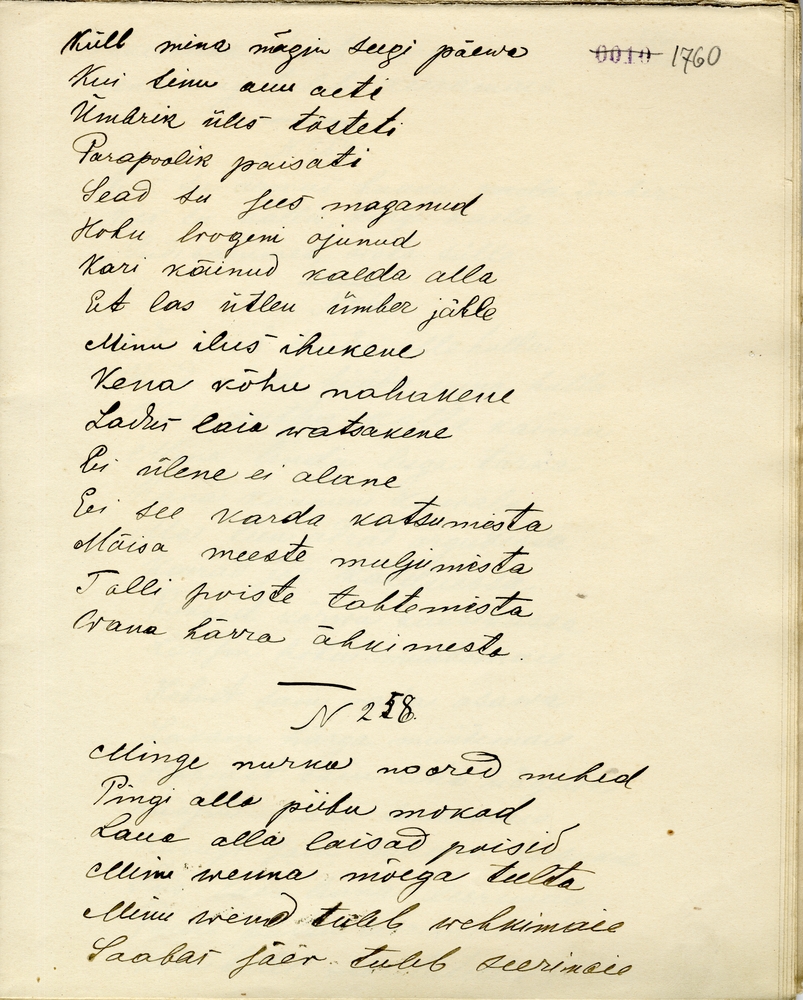 0010 1760
Küll mina nägin seegi päewa
Kui sinu auu aeti
Ümbrik üles tõsteti
Parapoolik paisati
Sead su sees maganud
Hobu loogeni ojunud
Kari käinud kalda alla
Et las ütlen ümber jälle
Minu ilus ihukene
Kena kõhu nahakene
Ladus laia watsakene
Ei ülene ei alane
Ei see karda katsumista
Mõisa meeste muljumista
Talli poiste tahtemista
Wana härra ähkimesta.
N 258.
Minge nurka noored mehed
Pingi alla piibu mokad
Laua alla laisad poisid
Minu wenna mõega tulta
Minu wend tuleb wehkimaie
Saabas säär tuleb seerimaie